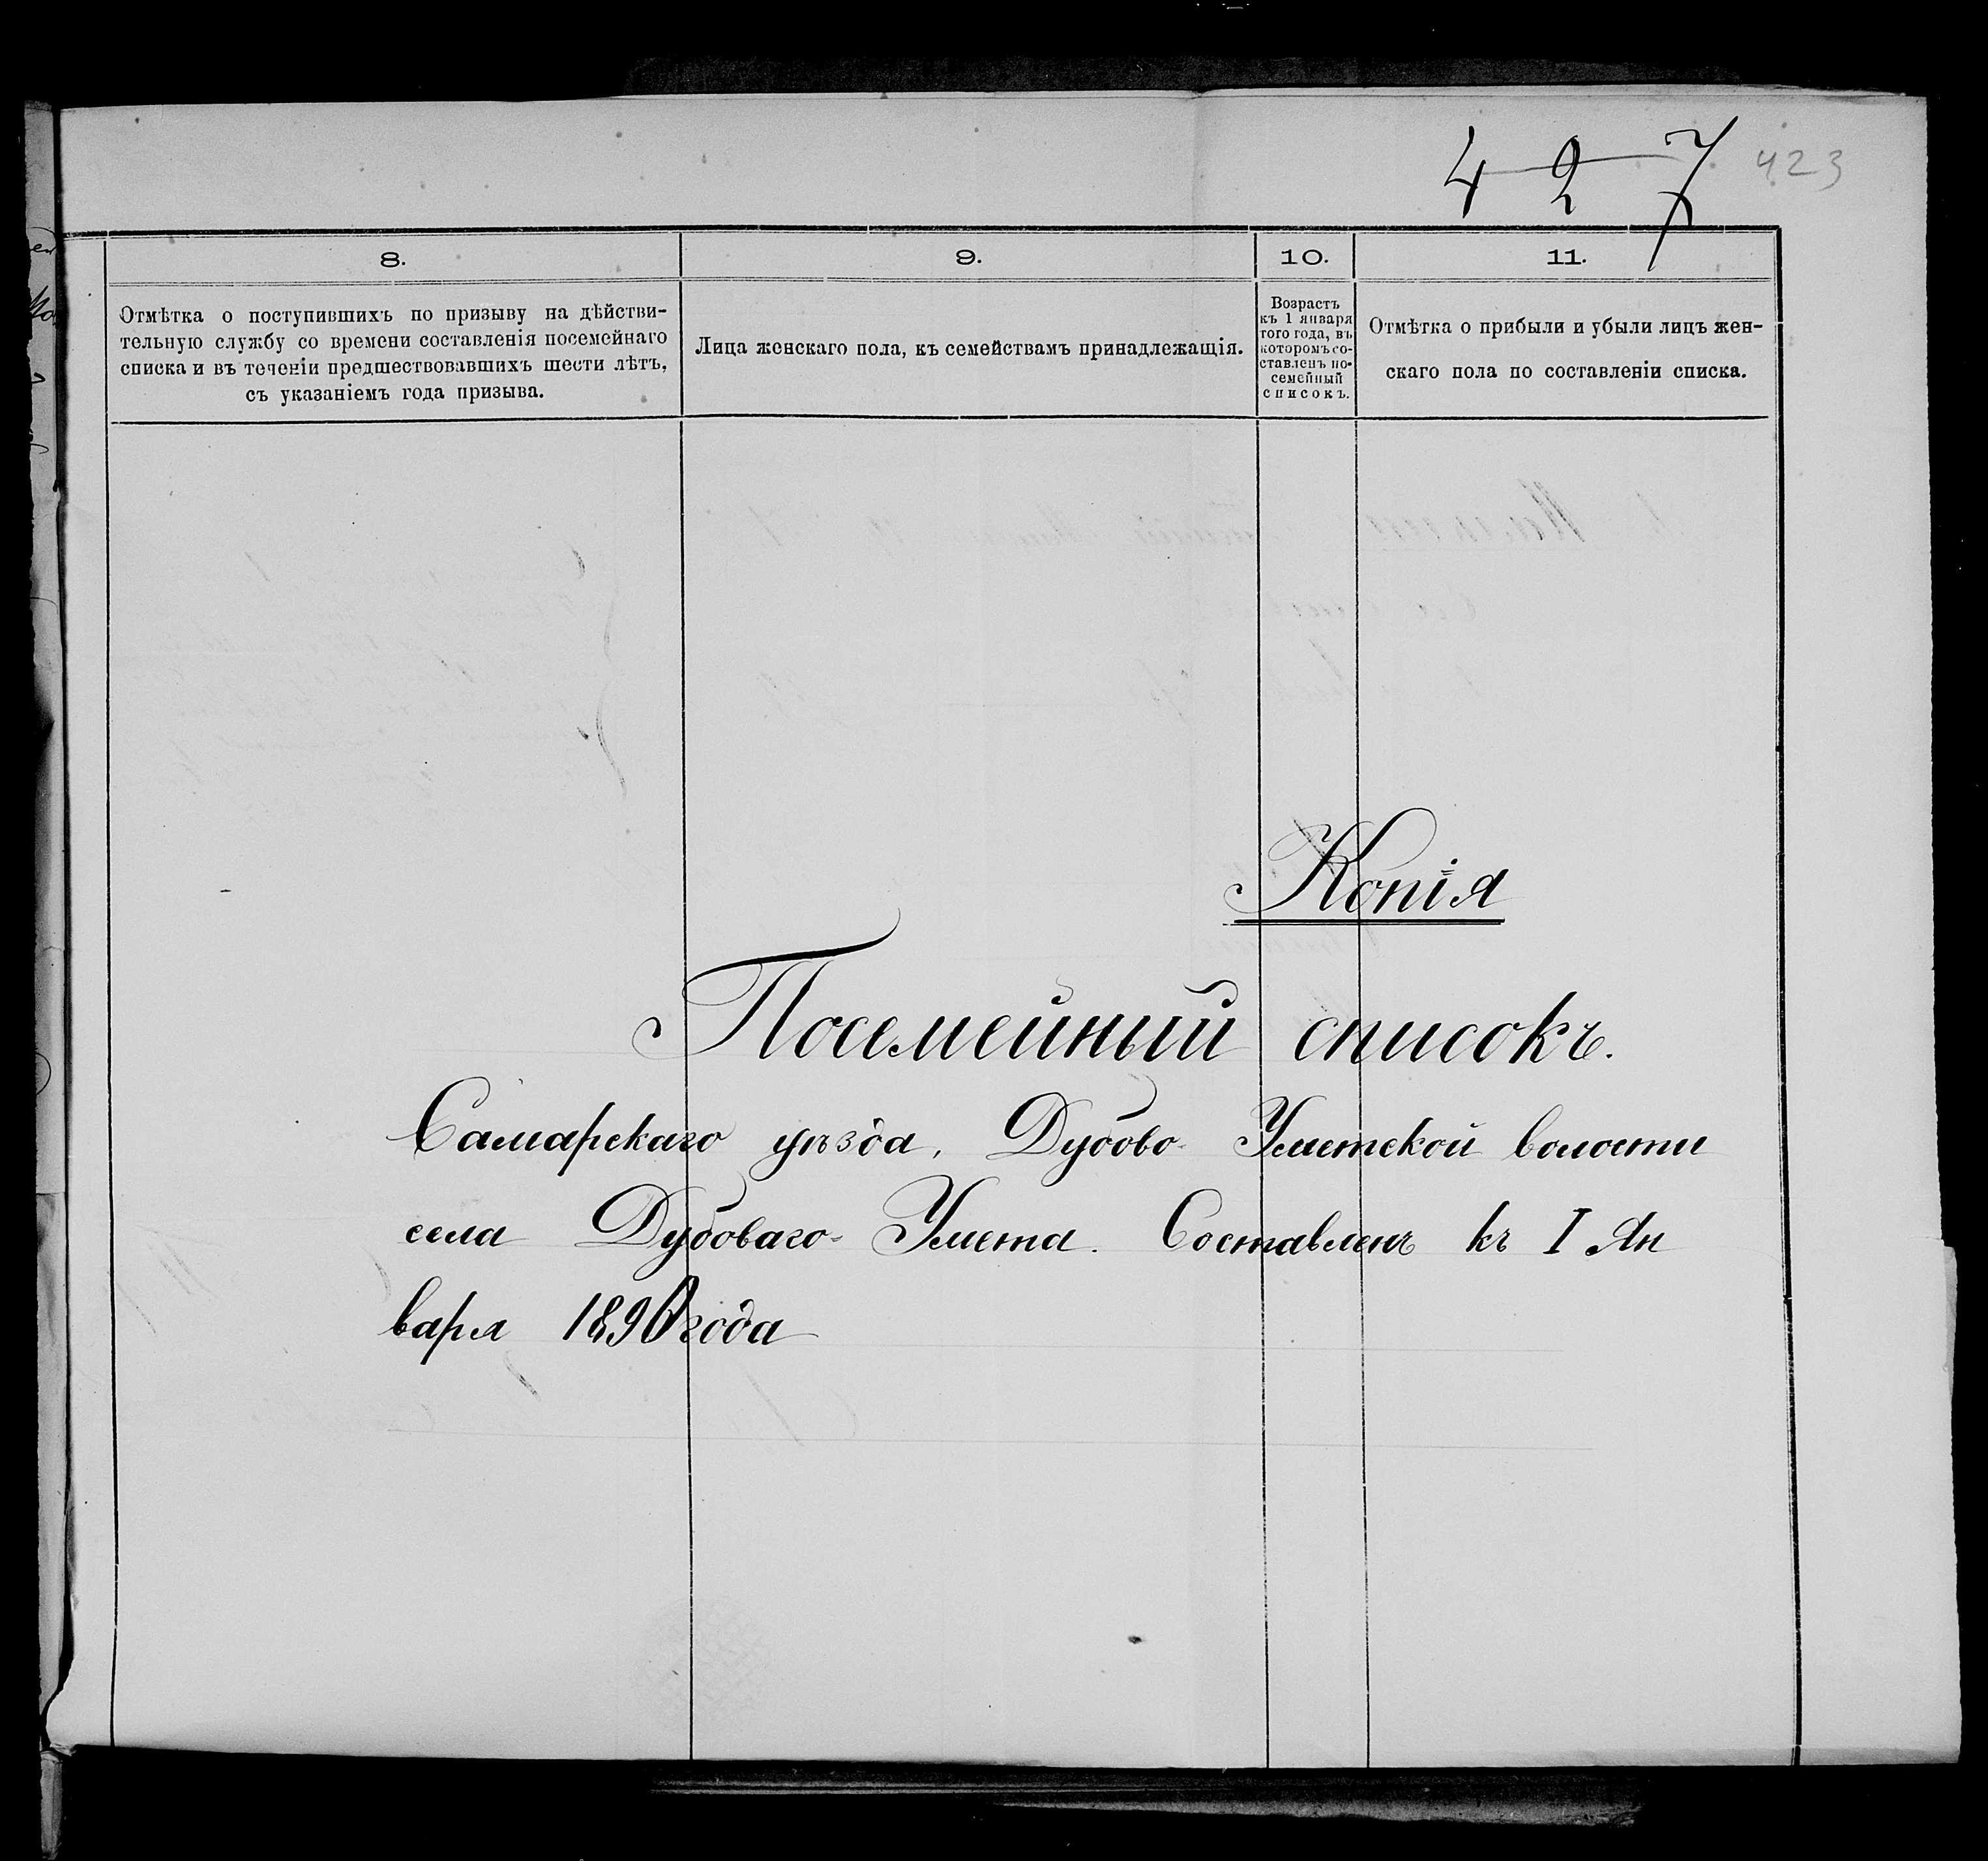 4 2 7 423
8. 9. 10. 11.
Отмѣтка о поступившихъ по призыву на дѣйстви-
тельную службу со времени составленія посемейнаго
списка и въ теченіи предшествовавшихъ шести лѣтъ,
съ указаніемъ года призыва.
Лица женскаго пола, къ семействамъ принадлежащія.
Возрастъ
къ 1 января
того года, въ
которомъ со-
ставленъ по-
семейный
списокъ.
Отмѣтка о прибыли и убыли лицъ жен-
скаго пола по составленіи списка.
Копія
Посемейный списокъ.
Самарскаго уѣзда, Дубово-Уметской волости
села Дубоваго-Умета. Составленъ къ I Ян
варя 1890 года